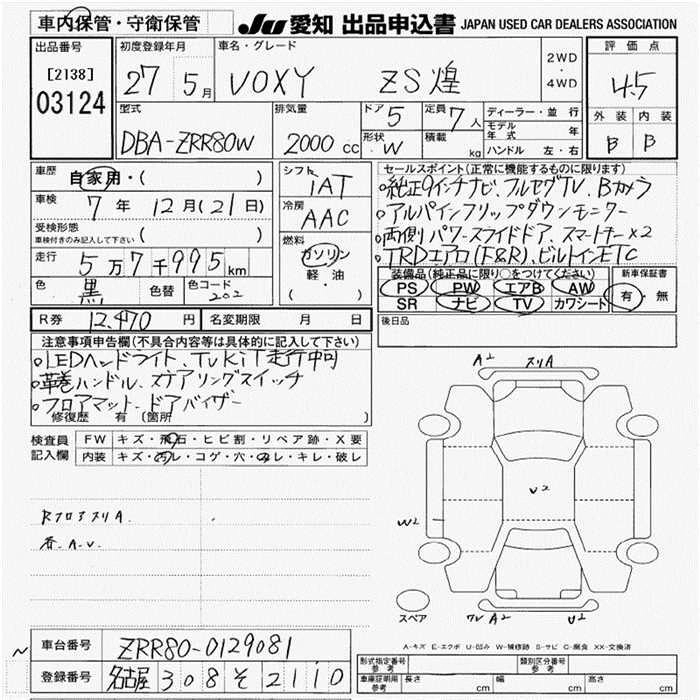 車内保管・守衛保管
JU 愛知 出品申込書 JAPAN USED CAR DEALERS ASSOCIATION
出品番号
[2138]
03124
初度登録年月
27 5月
車名・グレード
VOXY ZS煌
2WD
・
4WD
評価点
4.5
外装 内装
B B
型式
DBA-ZRR80W
排気量
2000 cc
ドア 5
形状 W
定員 7人
積載 kg
ディーラー・並行
モデル年式 年
ハンドル 左・右
車歴
自家用・( )
車検
7年 12月(21日)
受検形態
車検付きのみ記入して下さい ( )
走行
5万7千995km
色
黒
色替
色コード
202
シフト
IAT
冷房
AAC
燃料
ガソリン
軽・油
( )
セールスポイント(正常に機能するものに限ります)
○純正9インチナビ、フルセグTV、Bカメラ
○アルパインフリップダウンモニター
○両側パワースライドドア、スマートキー×2
○TRDエアロ(F&R)、ビルトインETC
装備品(純正品に限り○をつけてください)
PS PW エアB AW
SR ナビ TV カワシート
新車保証書
有・無
R券 12,470円
名変期限 月 日
後日品
注意事項申告欄(不具合内容等は具体的に記入して下さい)
○LEDヘッドライト、TVKIT走行中可
○革巻ハンドル、ステアリングスイッチ
○フロアマット、ドアバイザー
修復歴 有 (箇所 )
検査員
記入欄
FW キズ・飛石・ヒビ割・リペア跡・X要
内装 キズ・汚レ・コゲ・穴・スレ・キレ・破レ
A2 スリA
U2
W2
RフロアスリA
A.U
スペア
ワレA2 U2
A-キズ E-エクボ U-凹み W-補修跡 S-サビ C-腐食 XX-交換済
車台番号 ZRR80-0129081
登録番号 名古屋 308 そ 2110
形式指定番号
参考
類別区分番号
参考
車庫証明用
参考
長さ cm 幅 cm 高さ cm